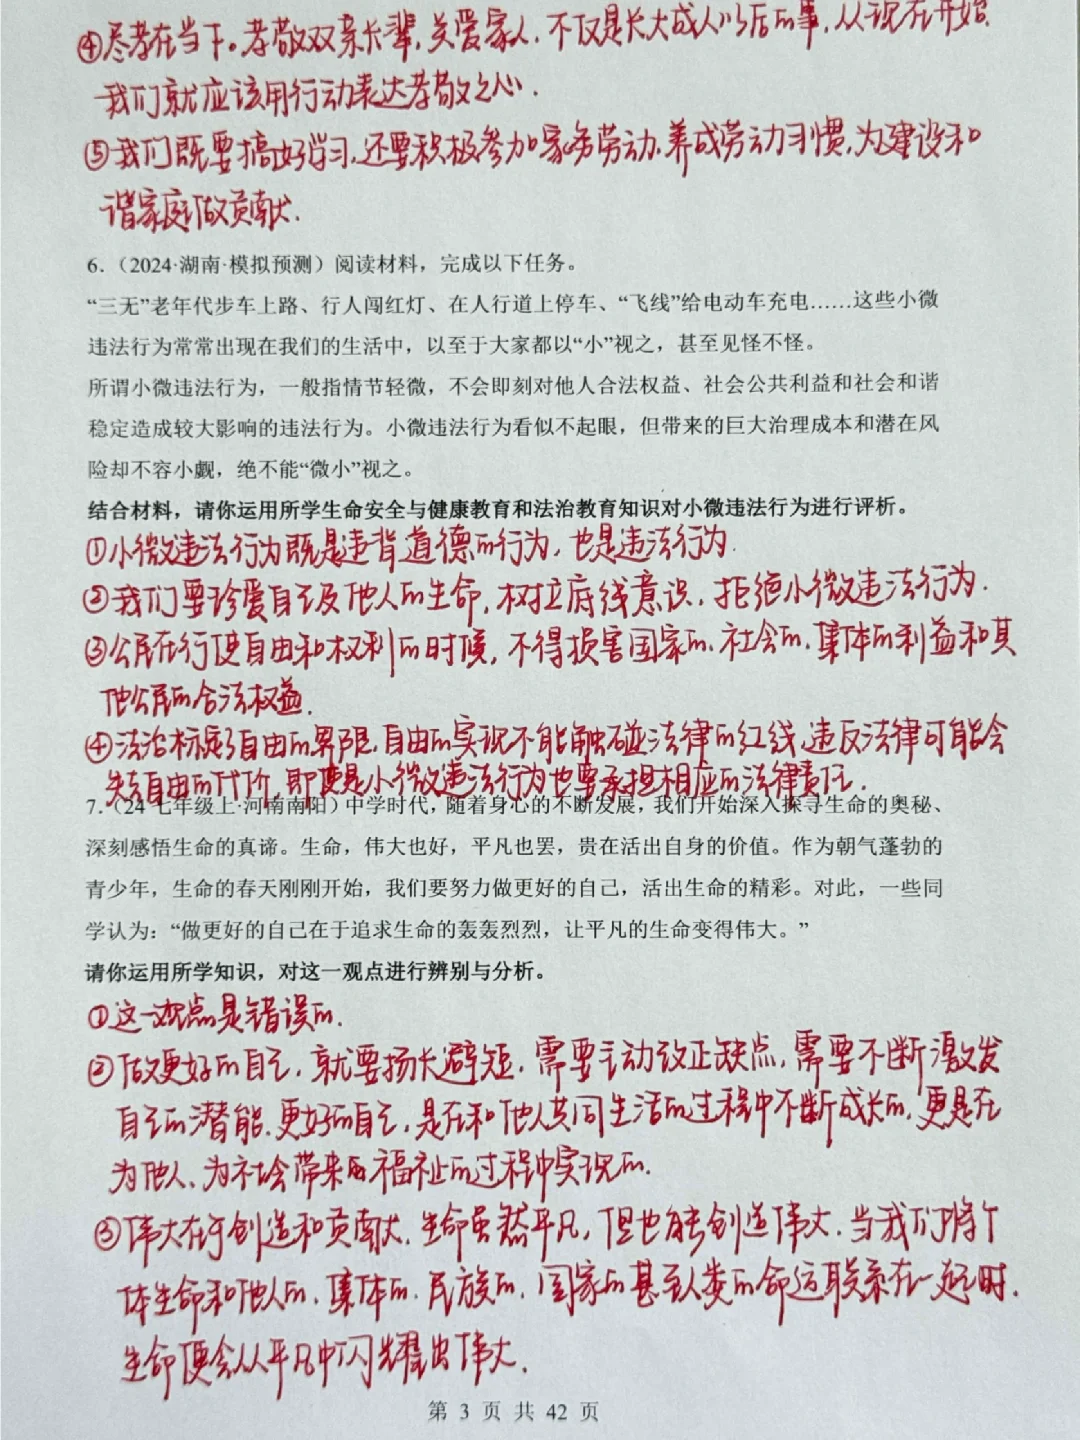 ④尽孝在当下。孝敬双亲长辈,关爱家人,不仅是长大成人以后的事,从现在开始,
我们就应该用行动表达孝敬之心.
⑤我们既要搞好学习,还要积极参加家务劳动,养成劳动习惯,为建设和
谐家庭做贡献.
6.（2024·湖南·模拟预测）阅读材料，完成以下任务。
“三无”老年代步车上路、行人闯红灯、在人行道上停车、“飞线”给电动车充电……这些小微
违法行为常常出现在我们的生活中，以至于大家都以“小”视之，甚至见怪不怪。
所谓小微违法行为，一般指情节轻微，不会即刻对他人合法权益、社会公共利益和社会和谐
稳定造成较大影响的违法行为。小微违法行为看似不起眼，但带来的巨大治理成本和潜在风
险却不容小觑，绝不能“微小”视之。
结合材料，请你运用所学生命安全与健康教育和法治教育知识对小微违法行为进行评析。
①小微违法行为既是违背道德的行为,也是违法行为.
②我们要珍爱自己及他人的生命,树立底线意识,拒绝小微违法行为.
③公民在行使自由和权利的时候,不得损害国家的、社会的、集体的利益和其
他公民的合法权益.
④法治标定了自由的界限,自由的实现不能触碰法律的红线,违反法律可能会
失去自由的代价,即便是小微违法行为也要承担相应的法律责任.
7.（24 七年级上·河南南阳）中学时代，随着身心的不断发展，我们开始深入探寻生命的奥秘、
深刻感悟生命的真谛。生命，伟大也好，平凡也罢，贵在活出自身的价值。作为朝气蓬勃的
青少年，生命的春天刚刚开始，我们要努力做更好的自己，活出生命的精彩。对此，一些同
学认为：“做更好的自己在于追求生命的轰轰烈烈，让平凡的生命变得伟大。”
请你运用所学知识，对这一观点进行辨别与分析。
①这一观点是错误的.
②做更好的自己,就要扬长避短,需要主动改正缺点,需要不断激发
自己的潜能.更好的自己,是在和他人共同生活的过程中不断成长的,更是在
为他人、为社会带来的福祉的过程中实现的.
③伟大在于创造和贡献.生命虽然平凡,但也能创造伟大.当我们将个
体生命和他人的、集体的、民族的、国家的甚至人类的命运联系在一起时.
生命便会从平凡中闪耀出伟大.
第 3 页 共 42 页